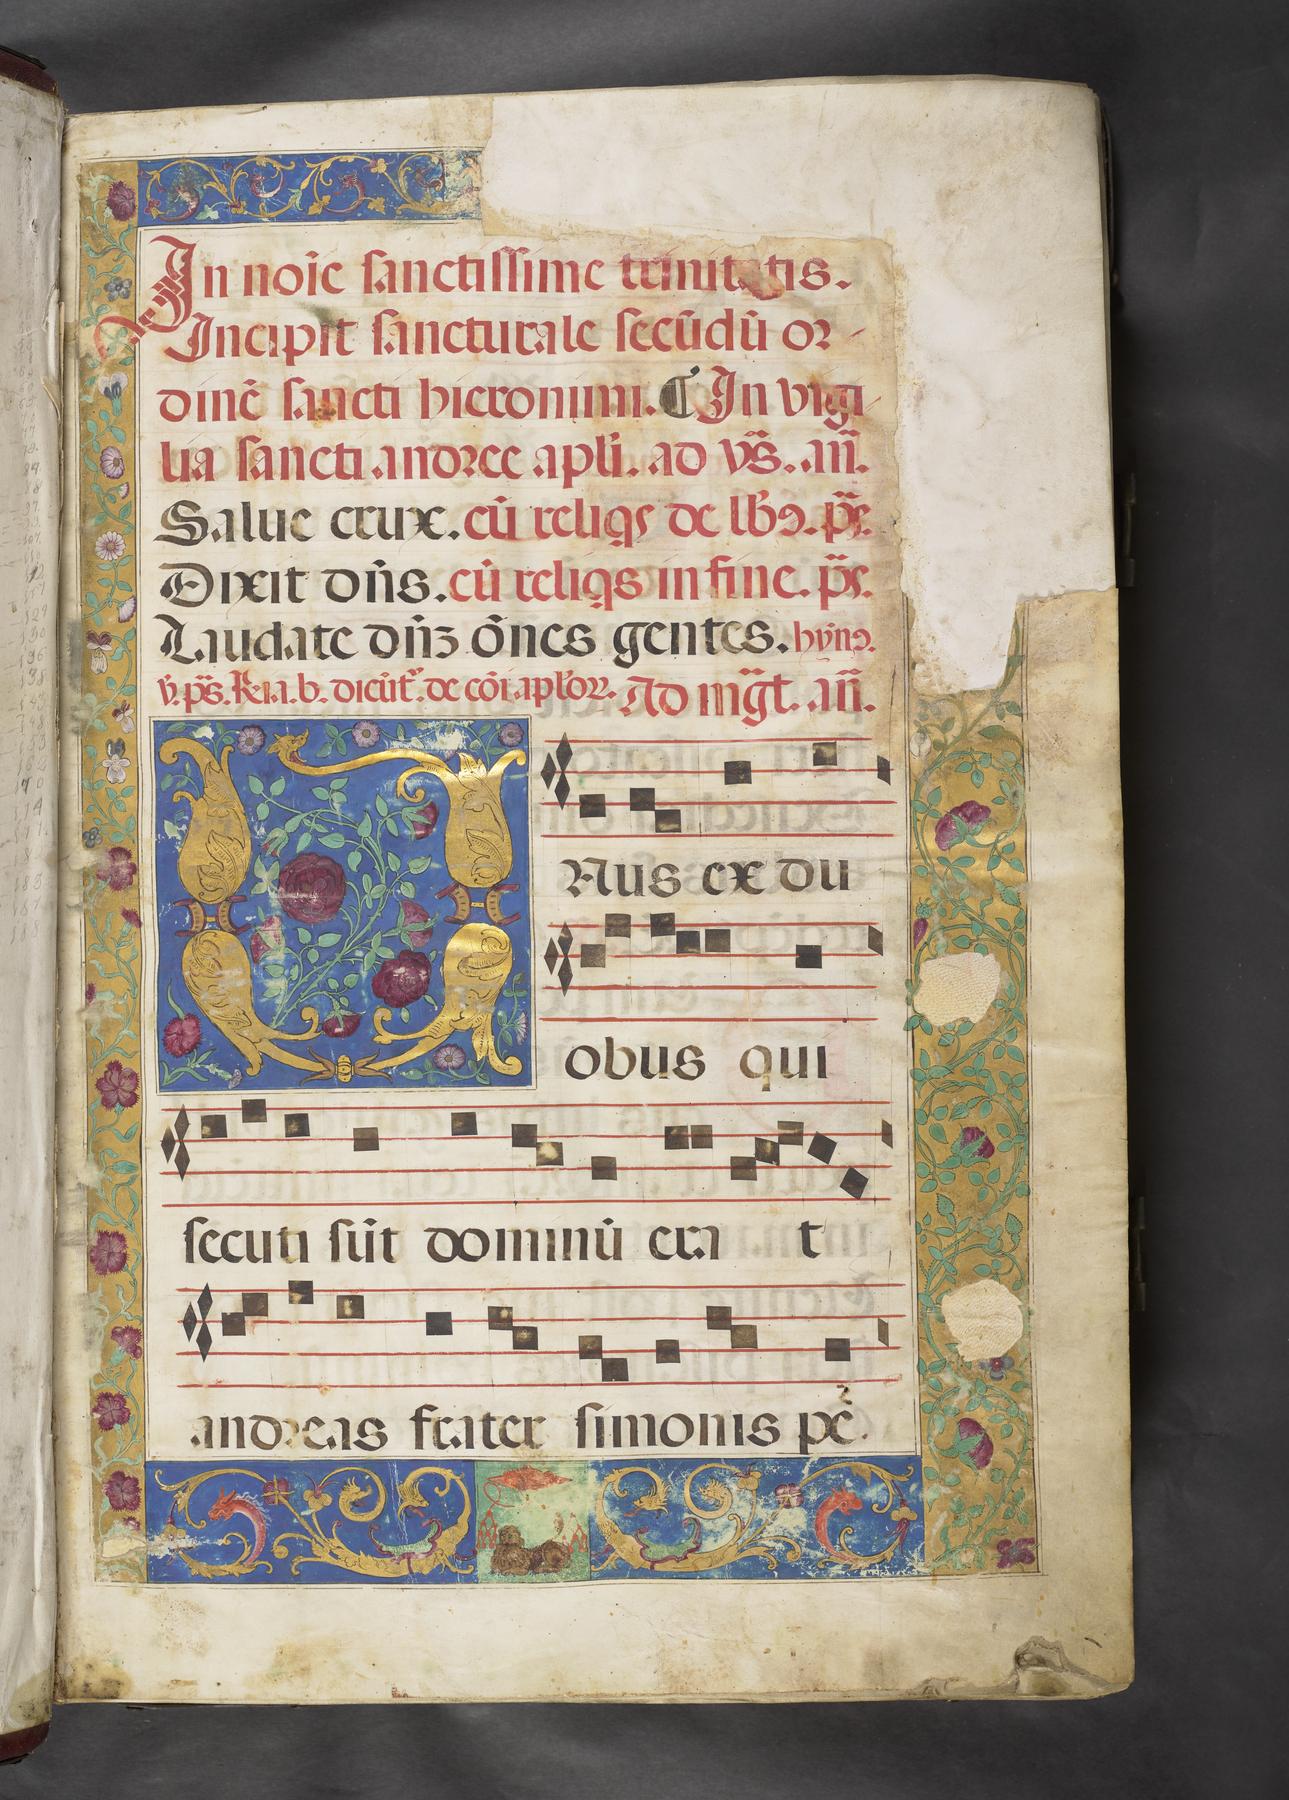 In noīe sanctissime trinitatis.
Incipit sancturale secūdū or
dinē sancti hieronimi. ¶ In vigi
lia sancti andree apl̄i. ad vs̄. añ.
Salue crux. cū reliqs de lb̄o. ps̄.
Dixit dn̄s. cū reliqs in fine. ps̄.
Laudate dn̄ꝫ ōnes gentes. hyno.
Ad mgt̄. añ.
UNus ex du
obus qui
secuti sūt dominū era t
andreas frater simonis pe